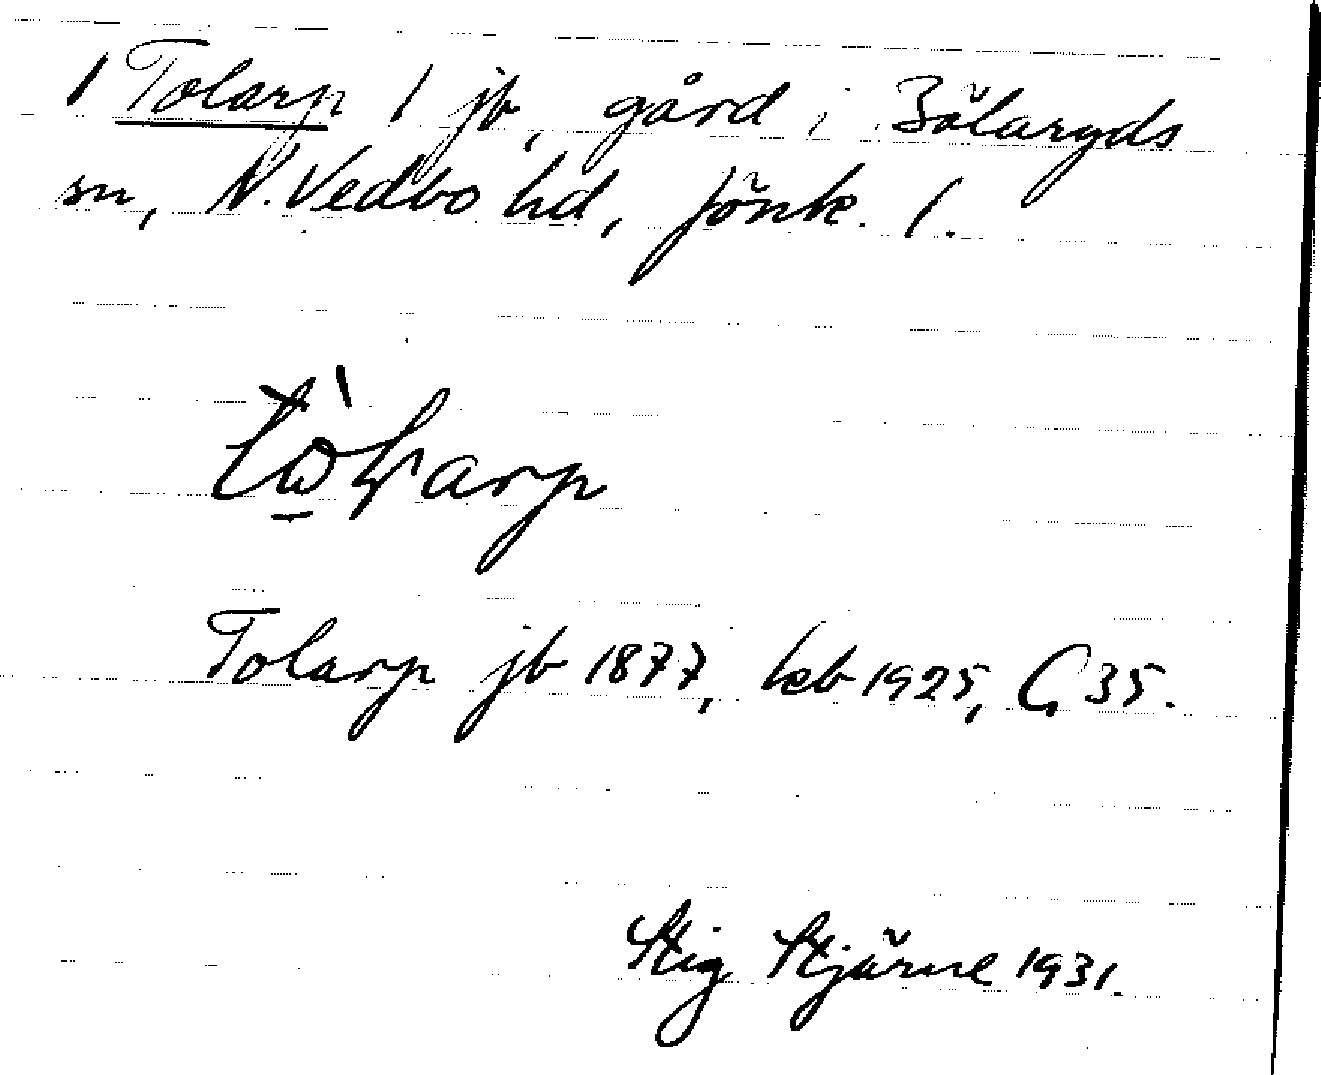 1 Tolarp 1 jb, gård i Bälaryds
sn, N. Vedbo hd, Jönk. l.
Tolarp jb 1877, keb 1925, G 35.
Stig Stjärne 1931.